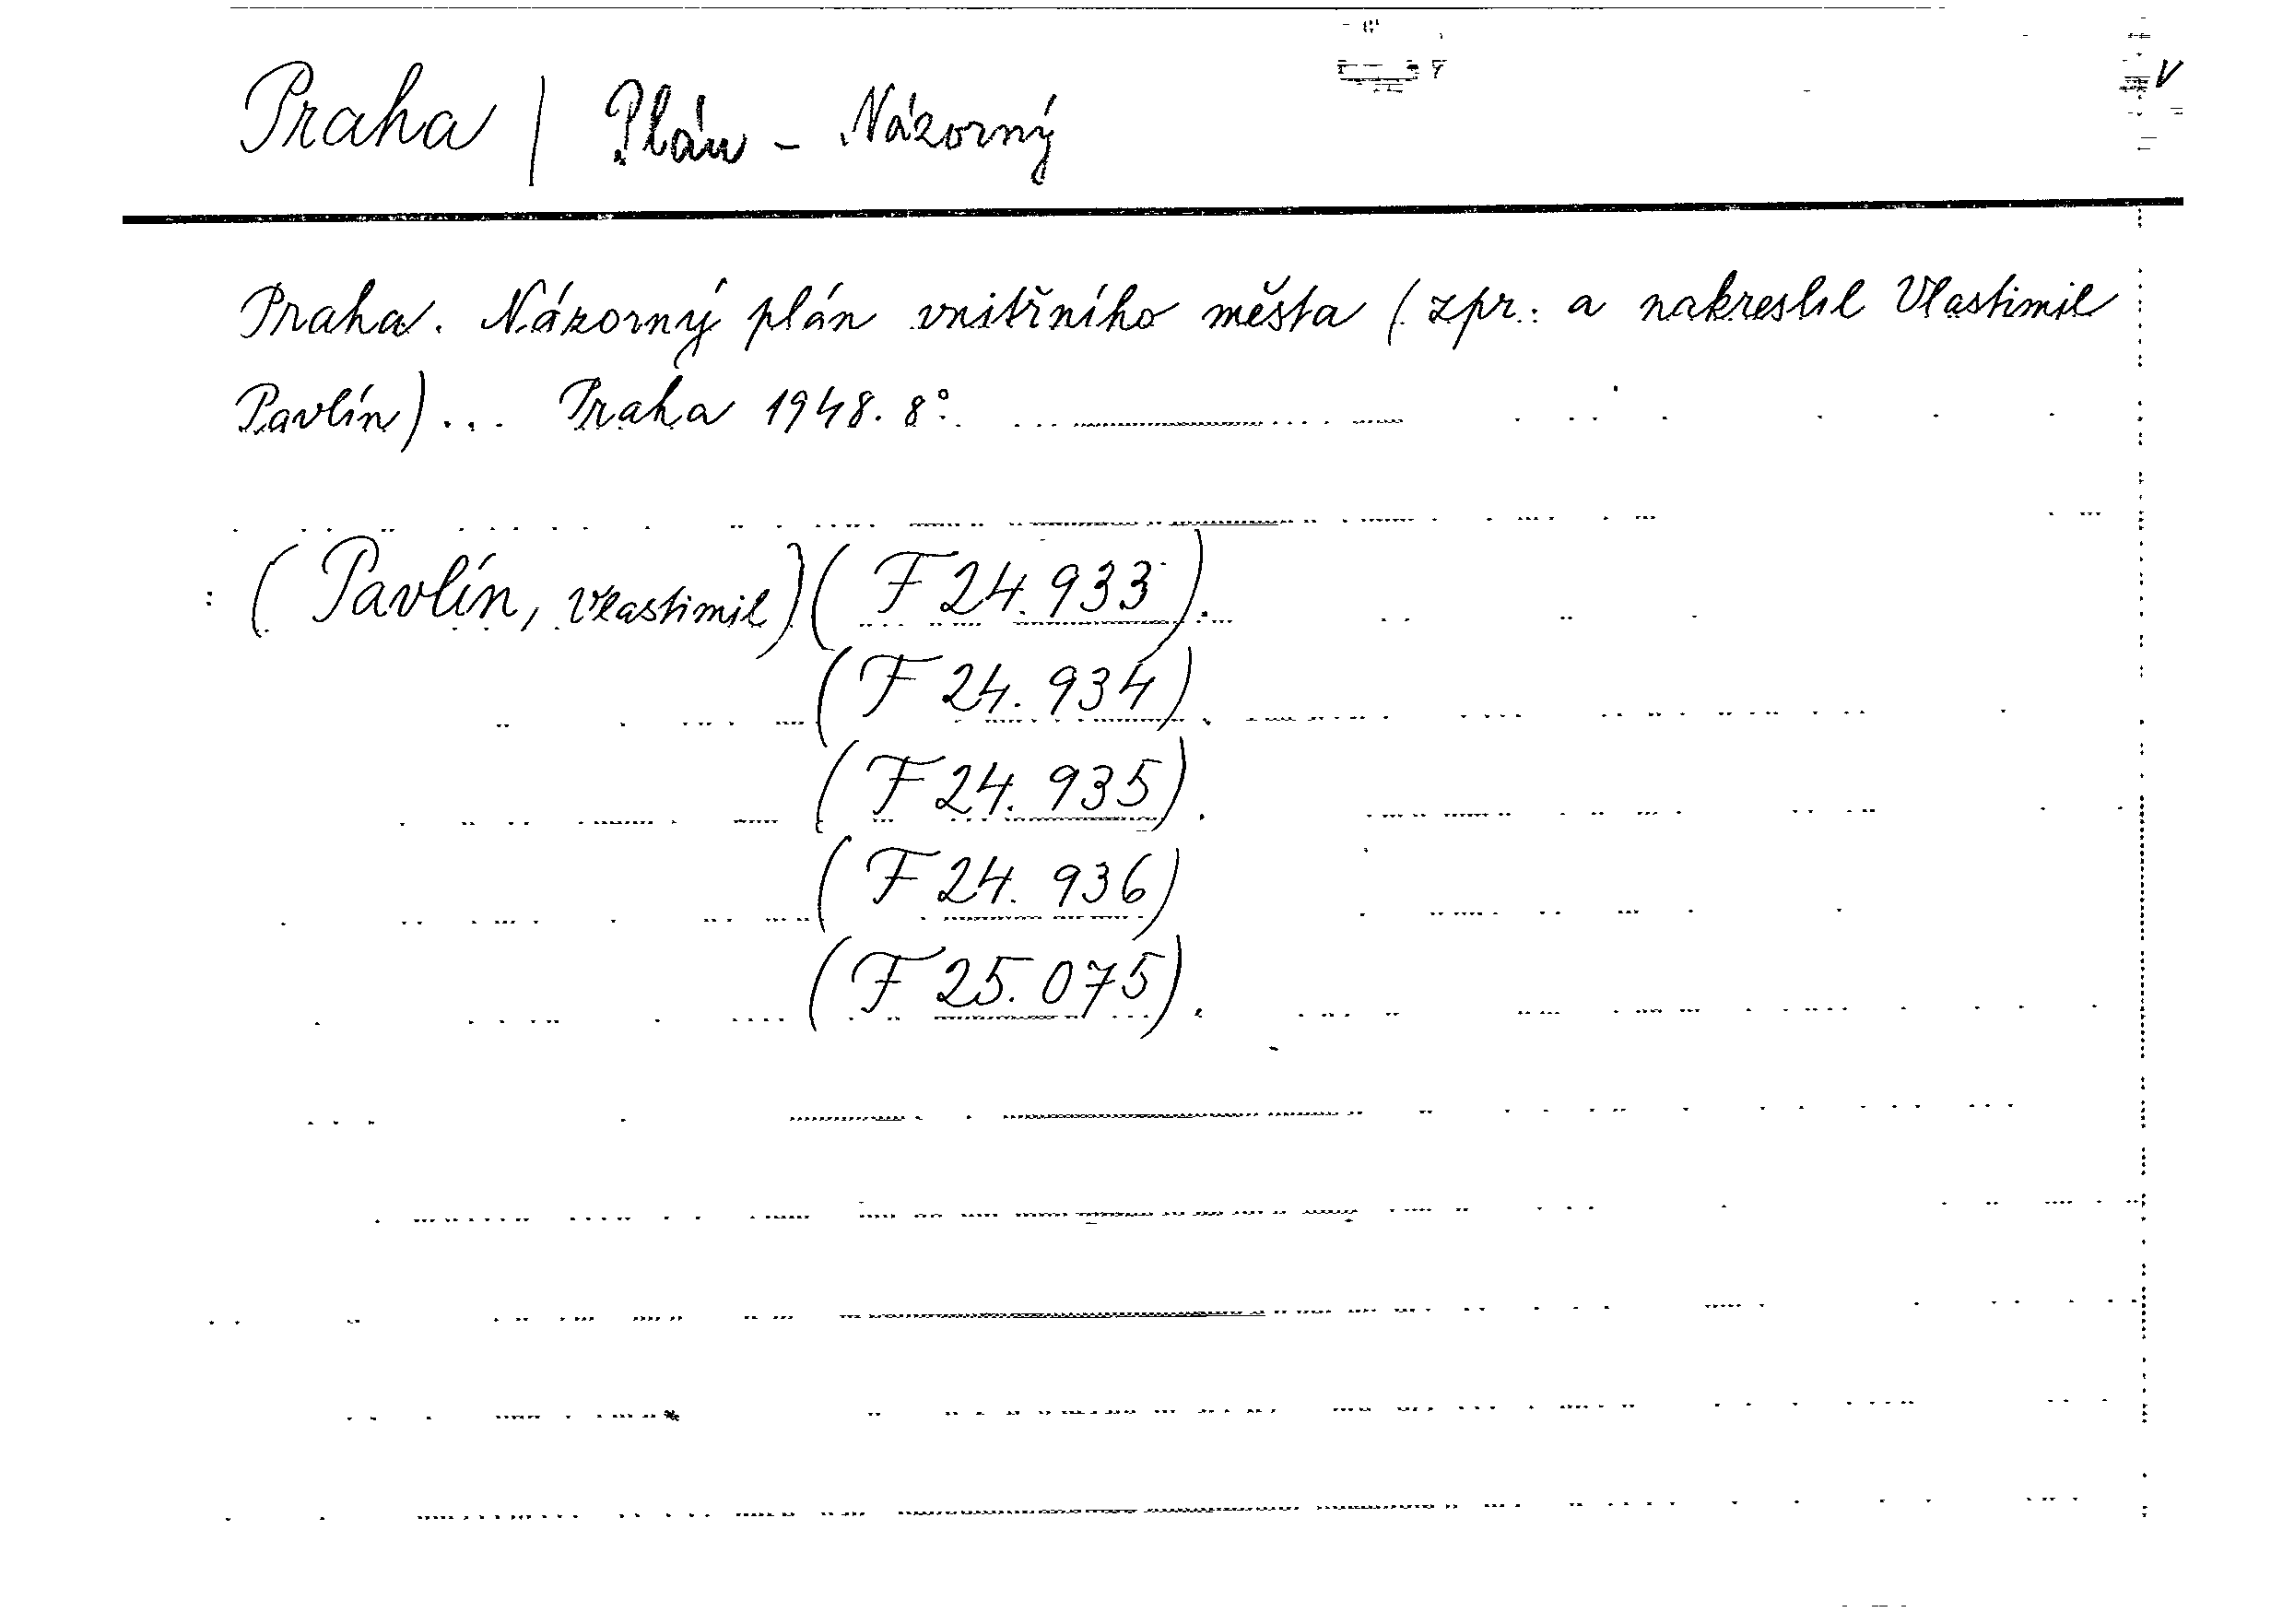 Praha / Plán - Názorný
Praha. Názorný plán vnitřního města (zpr. a nakreslil Vlastimil
Pavlín)... Praha 1948. 8°.
(Pavlín, Vlastimil) (F 24.933).
(F 24.934).
(F 24.935).
(F 24.936)
(F 25.075).